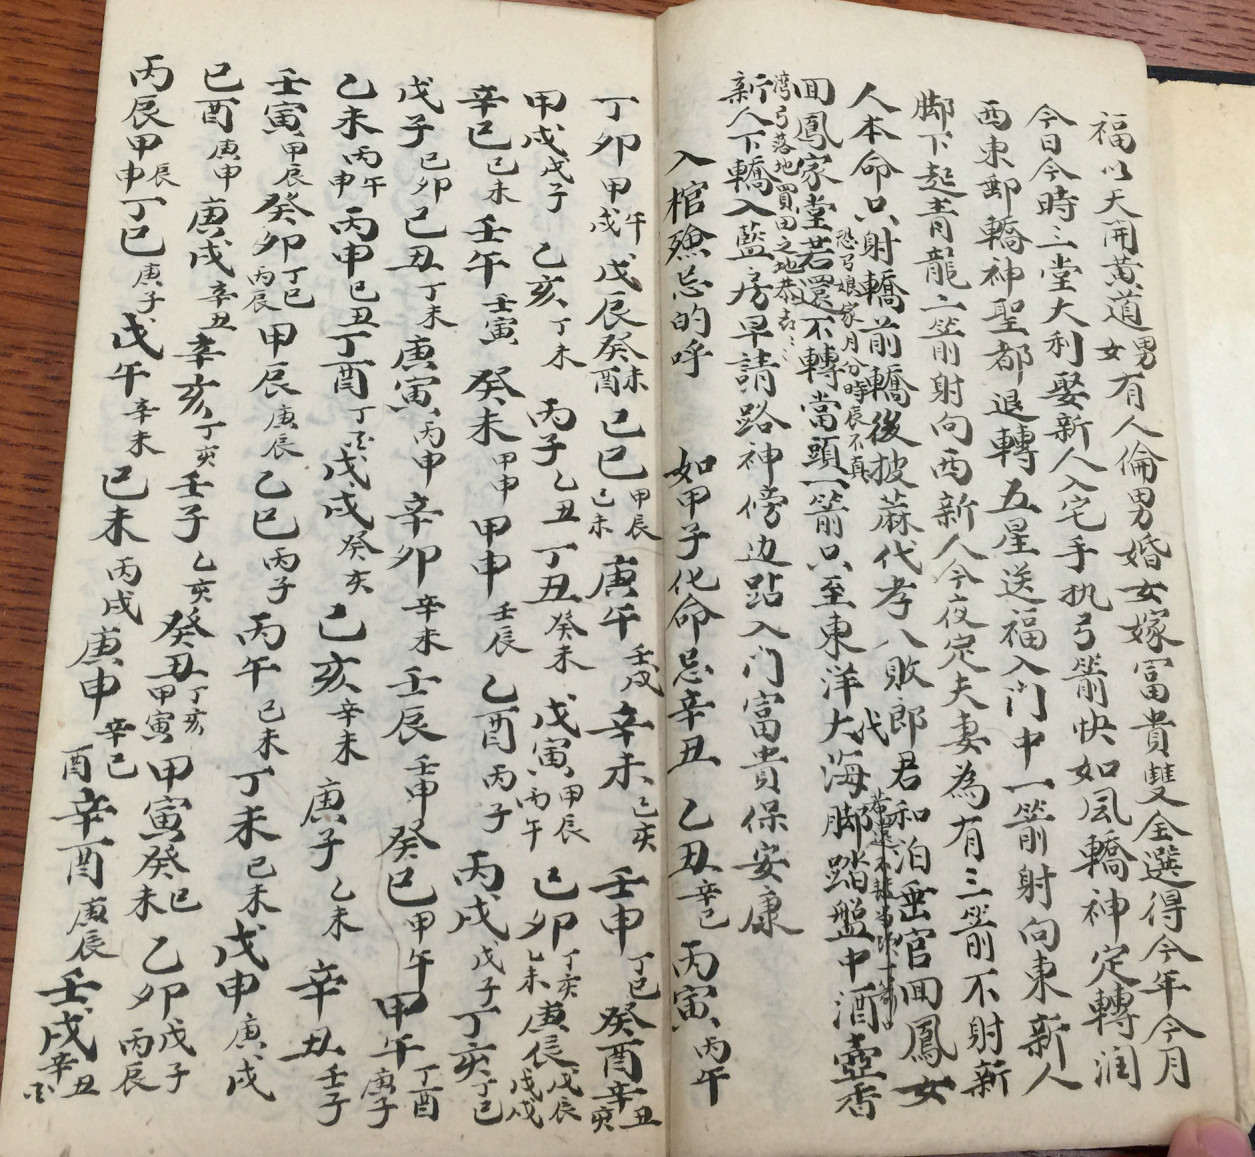 福以天開黄道男女有人倫男婚女嫁富貴雙全選得今年今月
今日今時三堂大利娶新人入宅手执弓箭快如风轎神定轉润
西東郵轎神聖都退轉五星送福入门中一箭射向東新人
脚下起青龍二箭射向西新人今夜定夫妻為有三箭不射新
人本命只射轎前轎後披蔴代孝八敗郎君和泊岳官回鳳女
恐弓娘家月分時辰不真
回鳳家堂若還不轉當頭一箭只至東洋大海脚踏盤中酒壺香
湾弓落地買田之地恭吉
新人下轎入藍房早請路神傍边跕入门富貴保安康
入棺殮忌的呼 如甲子化命忌辛丑 乙丑辛巳丙寅丙午
丁卯甲午戌戊辰癸未酉己巳甲辰己未庚午壬戌辛未己亥壬申丁巳癸酉辛丑亥
甲戌戊子乙亥丁未丙子乙丑丁丑癸未戊寅甲辰丙午己卯丁亥乙未庚辰戊辰戊戌
辛巳己未壬午壬寅癸未甲申甲申壬辰乙酉丙子丙戌戊子丁亥丁巳
戊子己卯己丑丁未庚寅丙申辛卯辛未壬辰壬申癸巳甲午甲午丁酉庚子
乙未丙午申丙申己丑丁酉丁亥戊戌癸亥己亥辛未庚子乙未辛丑壬子
壬寅甲辰癸卯丁巳丙辰甲辰庚辰乙巳丙子丙午己未丁未己未戊申庚戌
己酉庚申庚戌辛丑辛亥丁亥壬子乙亥癸丑丁亥甲寅甲寅癸巳未乙卯戊子丙辰
丙辰甲辰申丁巳庚子戊午辛未己未丙戌庚申辛巳酉辛酉庚辰壬戌辛丑